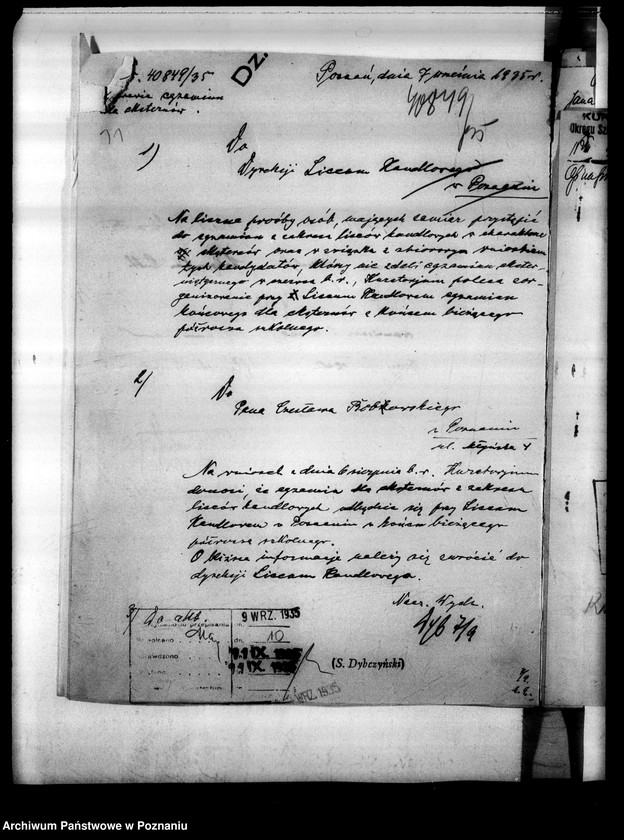 40849/35
Dz.
Poznań, dnia 7 września 1935 r.
sprawie egzaminu
dla eksternów.
40849/35
11
1) Do
Dyrekcji Liceum Handlowego
w Poznaniu
Na liczne prośby osób, mających zamiar przystąpić
do egzaminu z zakresu liceów handlowych w charakterze
eksternów oraz w związku z zbiorowym wnioskiem
tych kandydatów, którzy nie zdali egzaminu ekster-
nistycznego w czerwcu b.r., Kuratorjum poleca zor-
ganizowanie przy Liceum Handlowem egzaminu
końcowego dla eksternów z końcem bieżącego
półrocza szkolnego.
2) Do
Pana Czesława
w Poznaniu
ul. 4
Na wniosek z dnia 6 sierpnia b.r. Kuratorjum
donosi, że egzamin dla eksternów z zakresu
liceów handlowych odbędzie się przy Liceum
Handlowem w Poznaniu z końcem bieżącego
półrocza szkolnego.
O bliższe informacje należy się zwrócić do
dyrekcji Liceum Handlowego.
Nacz. Wydz.
7/9
3) Do akt.
9 WRZ. 1935
dn. 10
11 IX. 1935
11 IX. 1935
(S. Dybczyński)
WRZ. 1935
Okręgu Sz
Archiwum Państwowe w Poznaniu